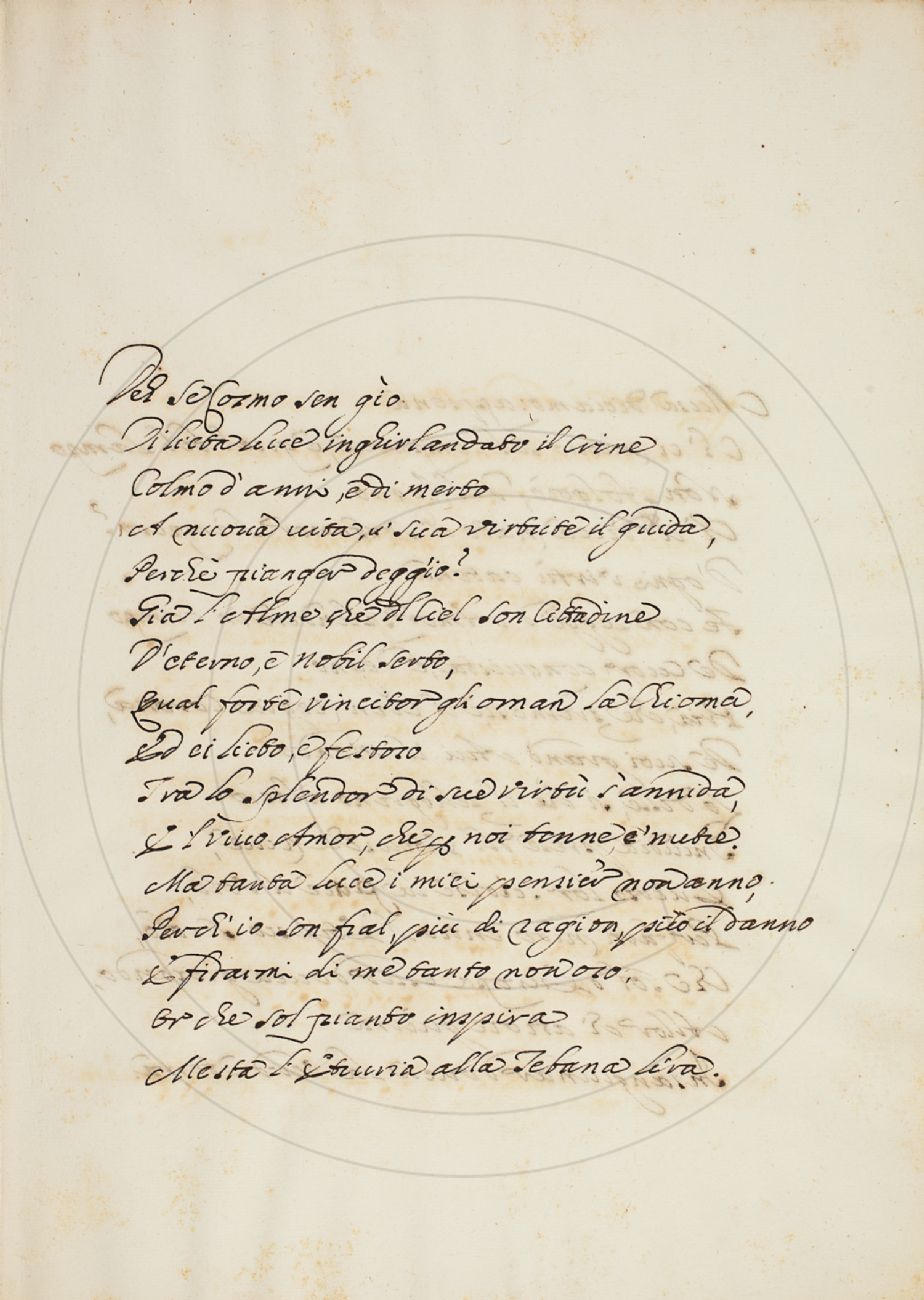 Deh se Cosmo sen gìo
Di lieta luce inghirlandato il Crine
Colmo d'anni, e di merto
A nuova vita, u' sua virtute il guida,
Perchè pianger deggìo?
Già l'Alme, che dl Ciel son Cittadine
D'eterno, e nobil serto,
Qual forte vincitor gli ornan la Chioma,
Ed ei lieto, e festoso
Tra lo splendor di sue virtù s'annida,
E 'l vivo Amor, che p noi tenne, e' nutre.
Ma tanta luce i miei pensier non anno,
Perch'io son fral, più di ragion, può il danno
E fidarmi di me tanto non oso,
Or che sol pianto inspira
Mesta l'Etruria alla Tebana lira.